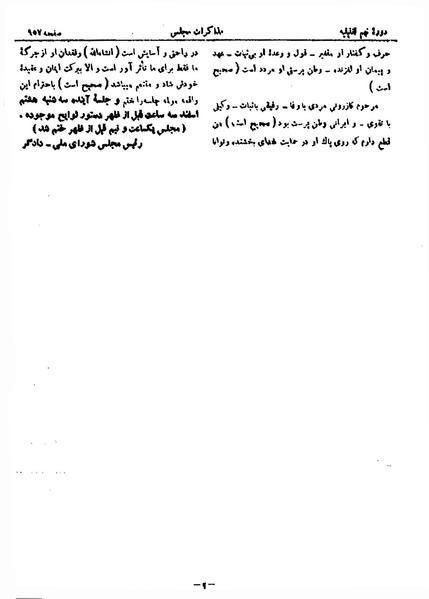 دورهٔ نهم تقنینیه مذاکرات مجلس صفحه ۹۵۷
حرف و گفتار او متغیر - قول و وعدهٔ او بی‌ثبات - عهد
و پیمان او لغزنده - وطن پرستی او مردد است ( صحیح
است )
مرحوم کازرونی مردی با وفا - رفیقی باثبات - وکیلی
با تقوی - و ایرانی وطن پرست بود ( صحیح است ) من
قطع دارم که روی پاک او در حمایت خدای بخشنده وتوانا
در راحتی و آسایش است ( انشاءالله ) و فقدان او از جرگهٔ
ما فقط برای ما تأثر آور است و الا ببرکت ایمان و عقیدهٔ
خودش شاد و متنعم میباشد ( صحیح است ) باحترام این
واقعه مولمه جلسه را ختم و جلسهٔ آینده سه شنبه هشتم
اسفند سه ساعت قبل از ظهر دستور لوایح موجوده .
( مجلس یکساعت و نیم قبل از ظهر ختم شد )
رئیس مجلس شورای ملی - دادگر
-۲-